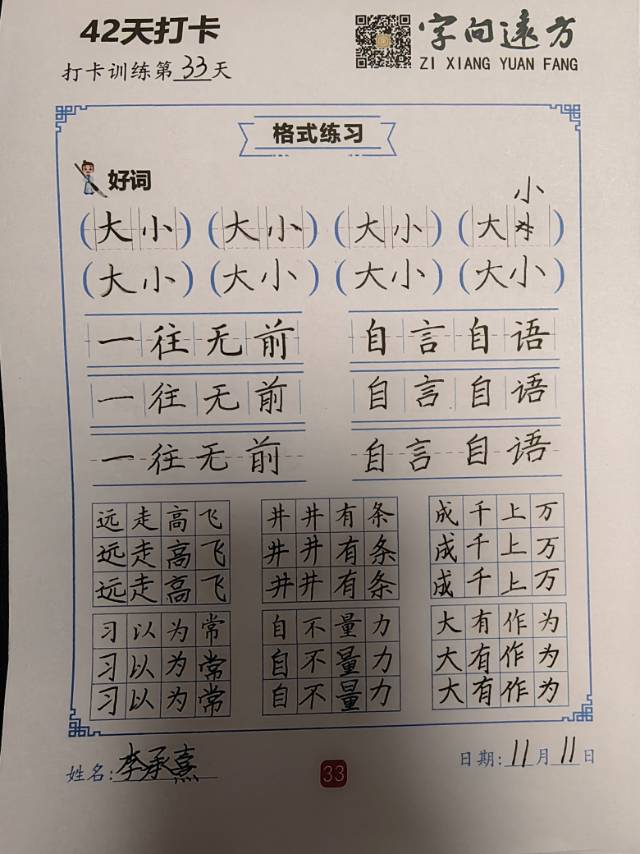 42天打卡
打卡训练第33天
字向远方
ZI XIANG YUAN FANG
格式练习
好词
小
(大小) (大小) (大小) (大小)
(大小) (大小) (大小) (大小)
一往无前 自言自语
一往无前 自言自语
一往无前 自言自语
远走高飞 井井有条 成千上万
远走高飞 井井有条 成千上万
远走高飞 井井有条 成千上万
习以为常 自不量力 大有作为
习以为常 自不量力 大有作为
习以为常 自不量力 大有作为
姓名:李承熹 33 日期:11月11日